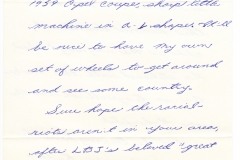 1959 Opel Coupe, sharp little
machine in A-1 shape. It'll
be nice to have my own
set of wheels to get around
and see some country.
Sure hope the racial
riots aren't in your area,
after LBJ's beloved "great